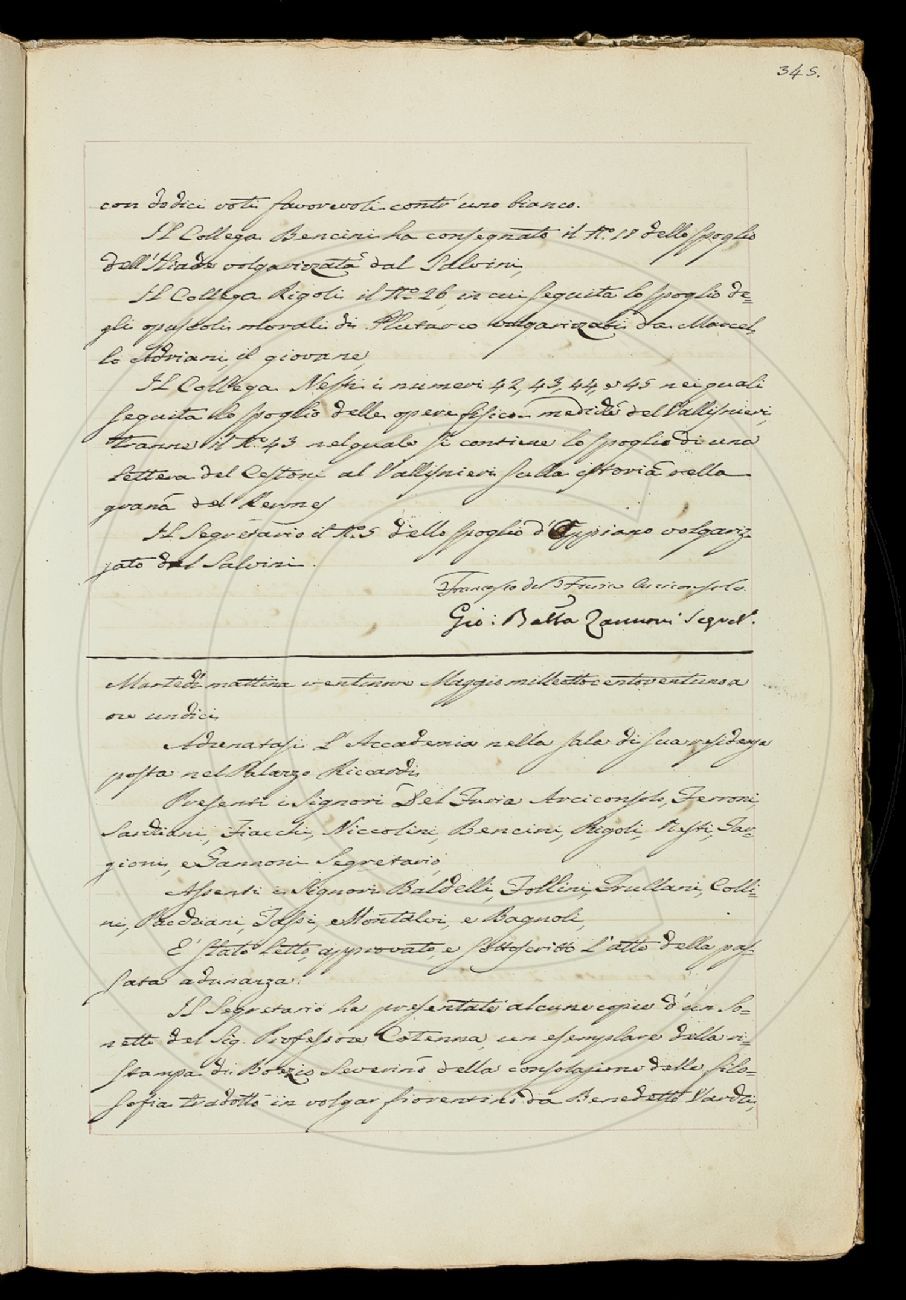 345.
con dodici voti favorevoli contr' uno bianco.
Il Collega Bencini ha consegnato il N.º 18 dello spoglio
dell'Iliade volgarizzata dal Salvini,
Il Collega Rigoli il N.º 26, in cui seguita lo spoglio de=
gli opuscoli morali di Plutarco volgarizzati da Marcel
lo Adriani il giovane,
Il Collega Nesti i numeri 42, 43, 44, e 45 nei quali
seguita lo spoglio delle opere fisico-mediche del Vallisnieri,
tranne il N.º 43 nel quale si contiene lo spoglio di una
Lettera del Cestoni al Vallisnieri sulla istoria della
grana del Kermes
Il Segretario il N.º 5 dello spoglio d'Appiano volgariz
zato dal Salvini.
Francesco del Furia Arciconsolo.
Gio: Batta Zannoni Segret.º
Martedì mattina ventinove Maggio milleottocentoventuno a
ore undici
Adunatasi l'Accademia nella sala di sua residenza
posta nel Palazzo Riccardi,
Presenti i Signori Del Furia Arciconsolo, Ferroni,
Sarchiani, Fiacchi, Niccolini, Bencini, Rigoli, Nesti, Tar=
gioni, e Zannoni Segretario,
Assenti i Signori Baldelli, Follini, Frullani, Colli=
ni, Pacchiani, Tassi, Montalvi, e Bagnoli,
E' stato letto, approvato, e sottoscritto l'atto della pas=
sata adunanza.
Il Segretario ha presentate alcune copie d'un So=
netto del Sig. Professore Catenna, un esemplare della ri=
stampa di Boezio Severino della consolazione della filo=
sofia tradotto in volgar fiorentino da Benedetto Varchi,